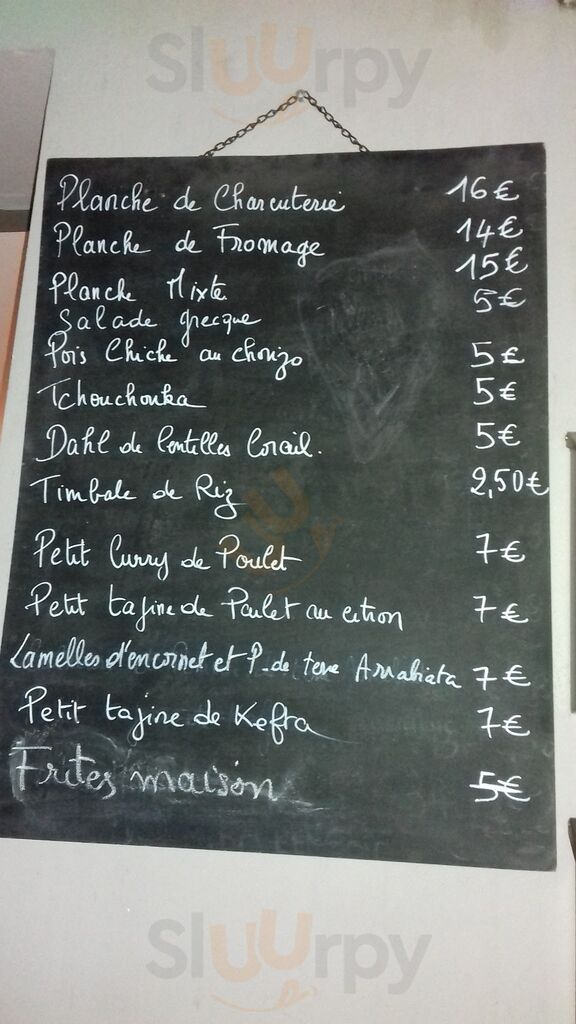 Sluurpy
Planche de Charcuterie 16€
Planche de Fromage 14€
Planche Mixte 15€
Salade grecque 5€
Pois Chiche au chorizo 5€
Tchouchouka 5€
Dahl de lentilles Corail. 5€
Timbale de Riz 2,50€
Petit Curry de Poulet 7€
Petit tajine de Poulet au citron 7€
Lamelles d'encornet et P. de terre Arrabiata 7€
Petit tajine de Kefta 7€
Frites maison 5€
Sluurpy